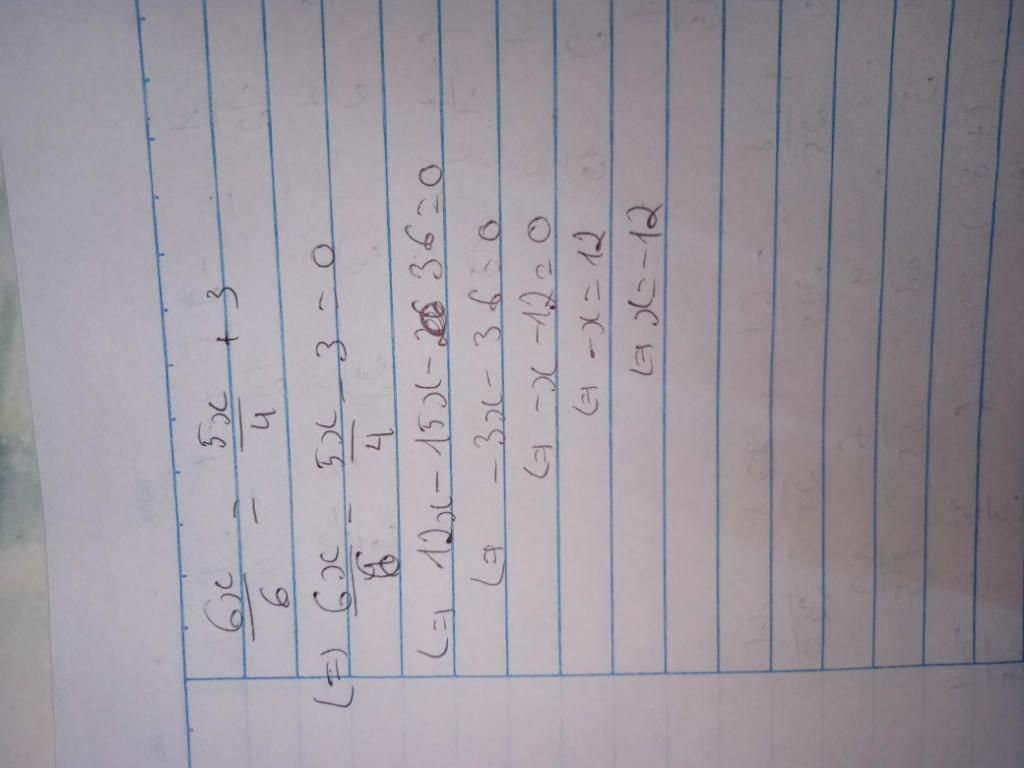 6x/6 = 5x/4 + 3
(=) 6x/6 - 5x/4 - 3 = 0
(=) 12x - 15x - 36 = 0
(= - 3x - 36 = 0
(= -x - 12 = 0
(= -x = 12
(= x = -12